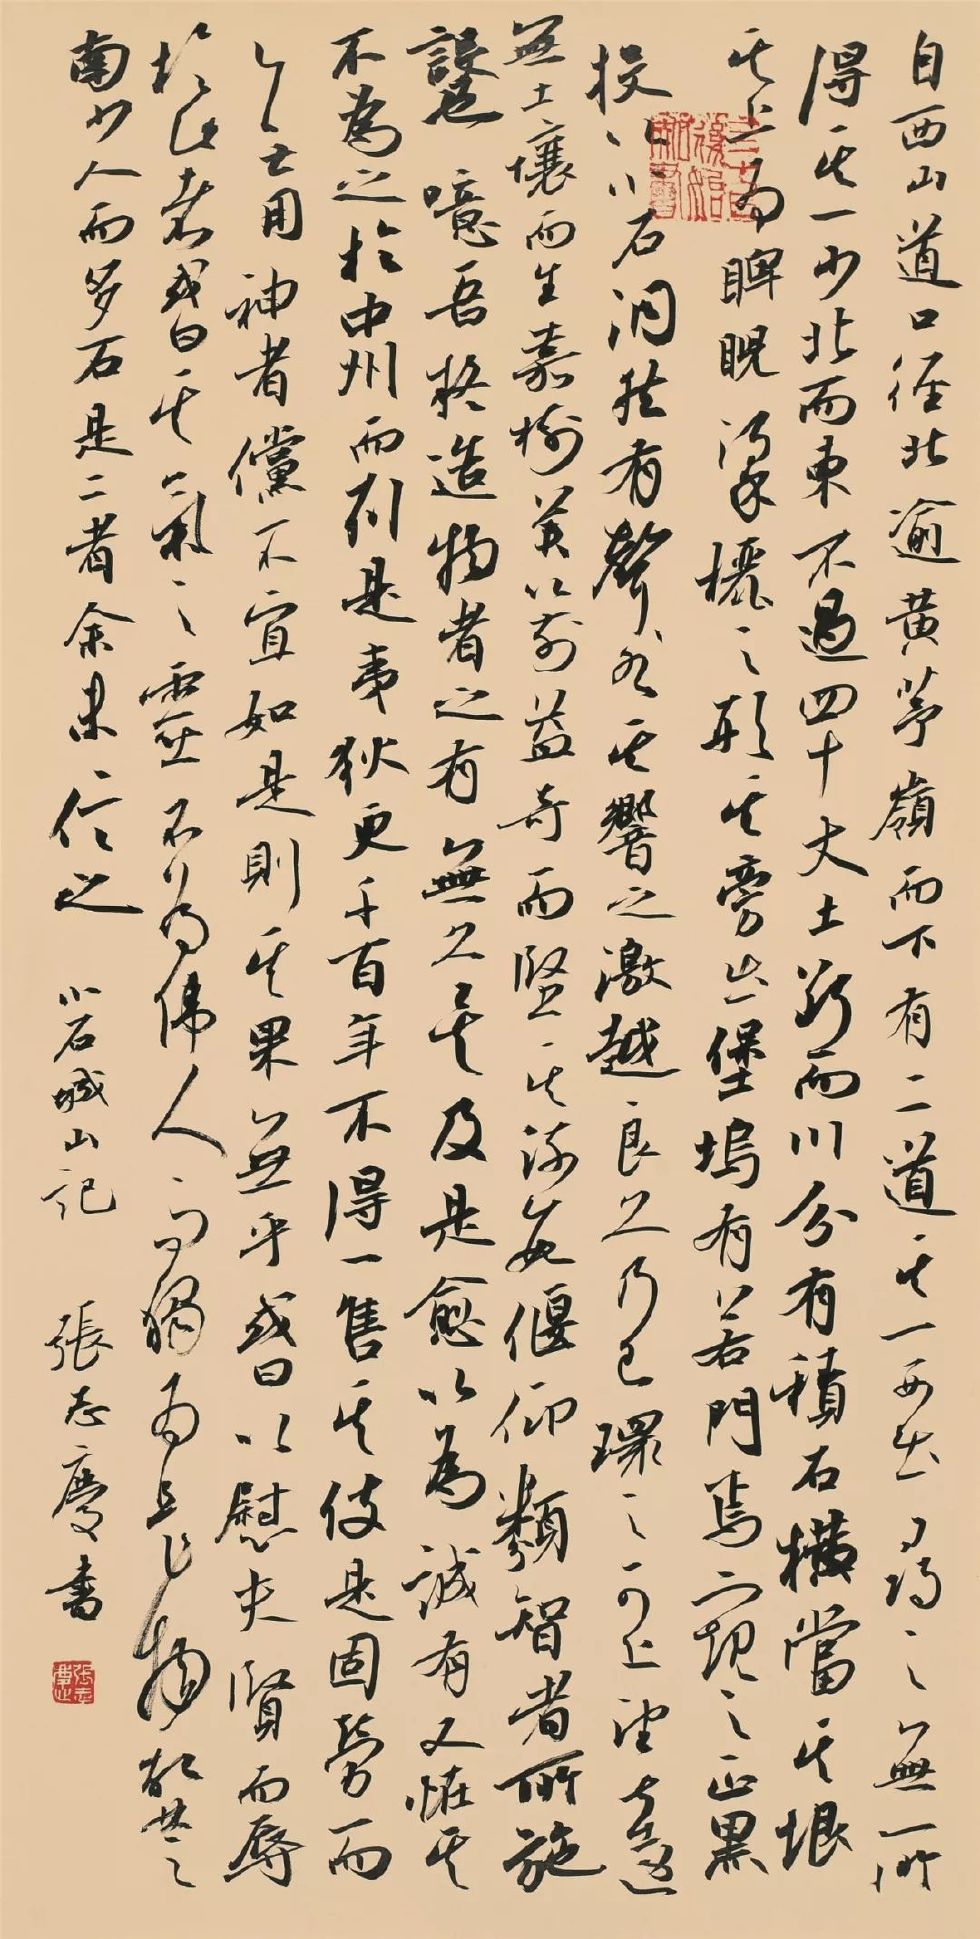 自西山道口徑北逾黃茅嶺而下有二道其一西出尋之無所
得其一少北而東不過四十丈土斷而川分有積石橫當其垠
其上為睥睨梁欐之形其旁出堡塢有若門焉窺之正黑
投以小石洞然有聲其響之激越良久乃已環之可上望甚遠
無土壤而生嘉樹美箭益奇而堅其疏數偃仰類智者所施
設也噫吾疑造物者之有無久矣及是愈以為誠有又怪其
不為之於中州而列是夷狄更千百年不得一售其伎是固勞而
無用神者儻不宜如是則其果無乎或曰以慰夫賢而辱
於此者或曰其氣之靈不為偉人而獨為是物故楚之
南少人而多石是二者余未信之 小石城山記 張志慶書